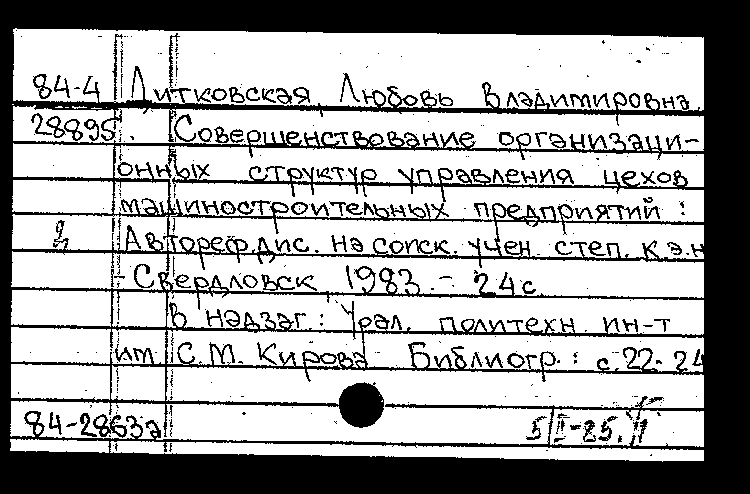 84-4 Дитковская, Любовь Владимировна.
28895. Совершенствование организаци-
онных структур управления цехов
машиностроительных предприятий :
2 Автореф.дис. на соиск. учен. степ. к.э.н
- Свердловск, 1983. - 24 с.
В надзаг.: Урал. политехн. ин-т
им. С.М. Кирова Библиогр.: с. 22-24
84-2863а 5/II-85.